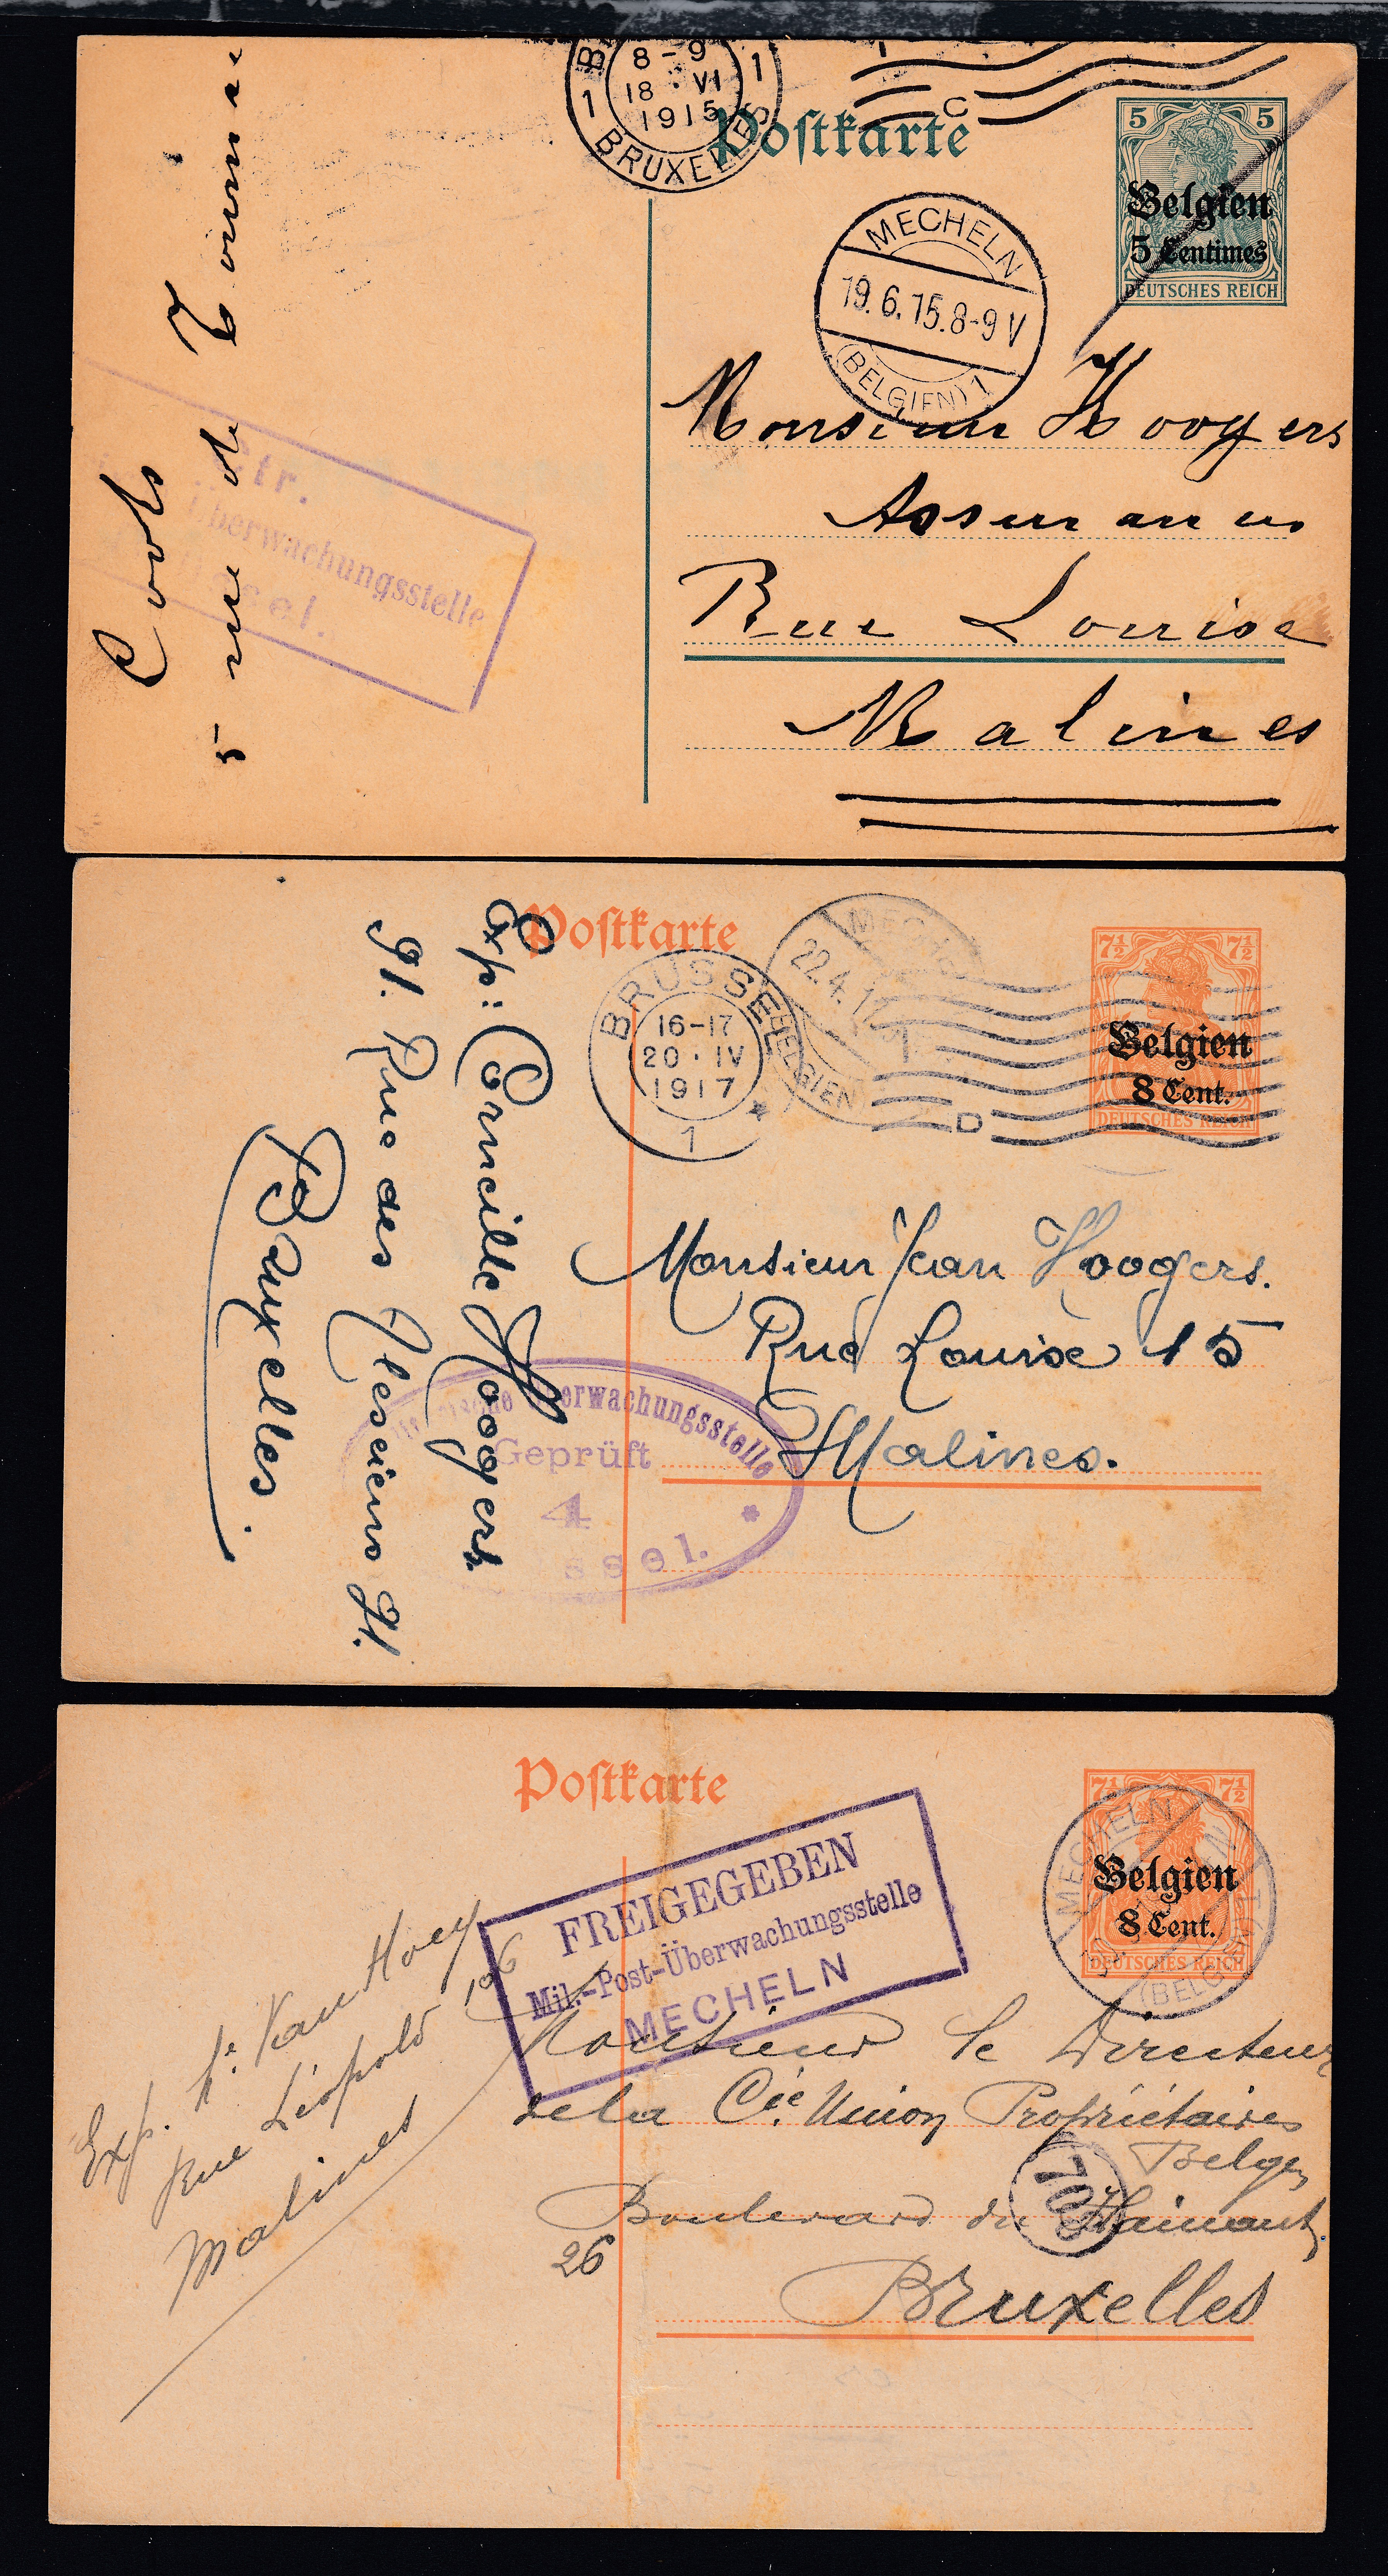 8-9
18·VI
1915
1 BRUXELLES 1
C
Postkarte
5 5
Belgien
5 Centimes
DEUTSCHES REICH
MECHELN
19.6.15.8-9V
(BELGIEN) 1
Monsieur Hoogers
Rue Louise
Malines
5 rue de
tr.
Überwachungsstelle
sel.
Postkarte
7½ 7½
Belgien
8 Cent.
DEUTSCHES REICH
BRUSSEL
16-17
20·IV
1917
1
D
22.4.17
(BELGIEN)
Exp: Corneille Hoogers.
91. Rue des
Bruxelles.
Monsieur Jean Hoogers.
Rue Louise 15
Malines.
Überwachungsstelle
Geprüft
4
ssel.
Postkarte
7½ 7½
Belgien
8 Cent.
DEUTSCHES REICH
MECHELN
FREIGEGEBEN
Mil.-Post-Überwachungsstelle
MECHELN
Exp. Van Hoey
Rue Léopold 106
Malines
Monsieur le Directeur
de la Cie. Union Propriétaires
Belges
Boulevard du Hainaut,
26
Bruxelles